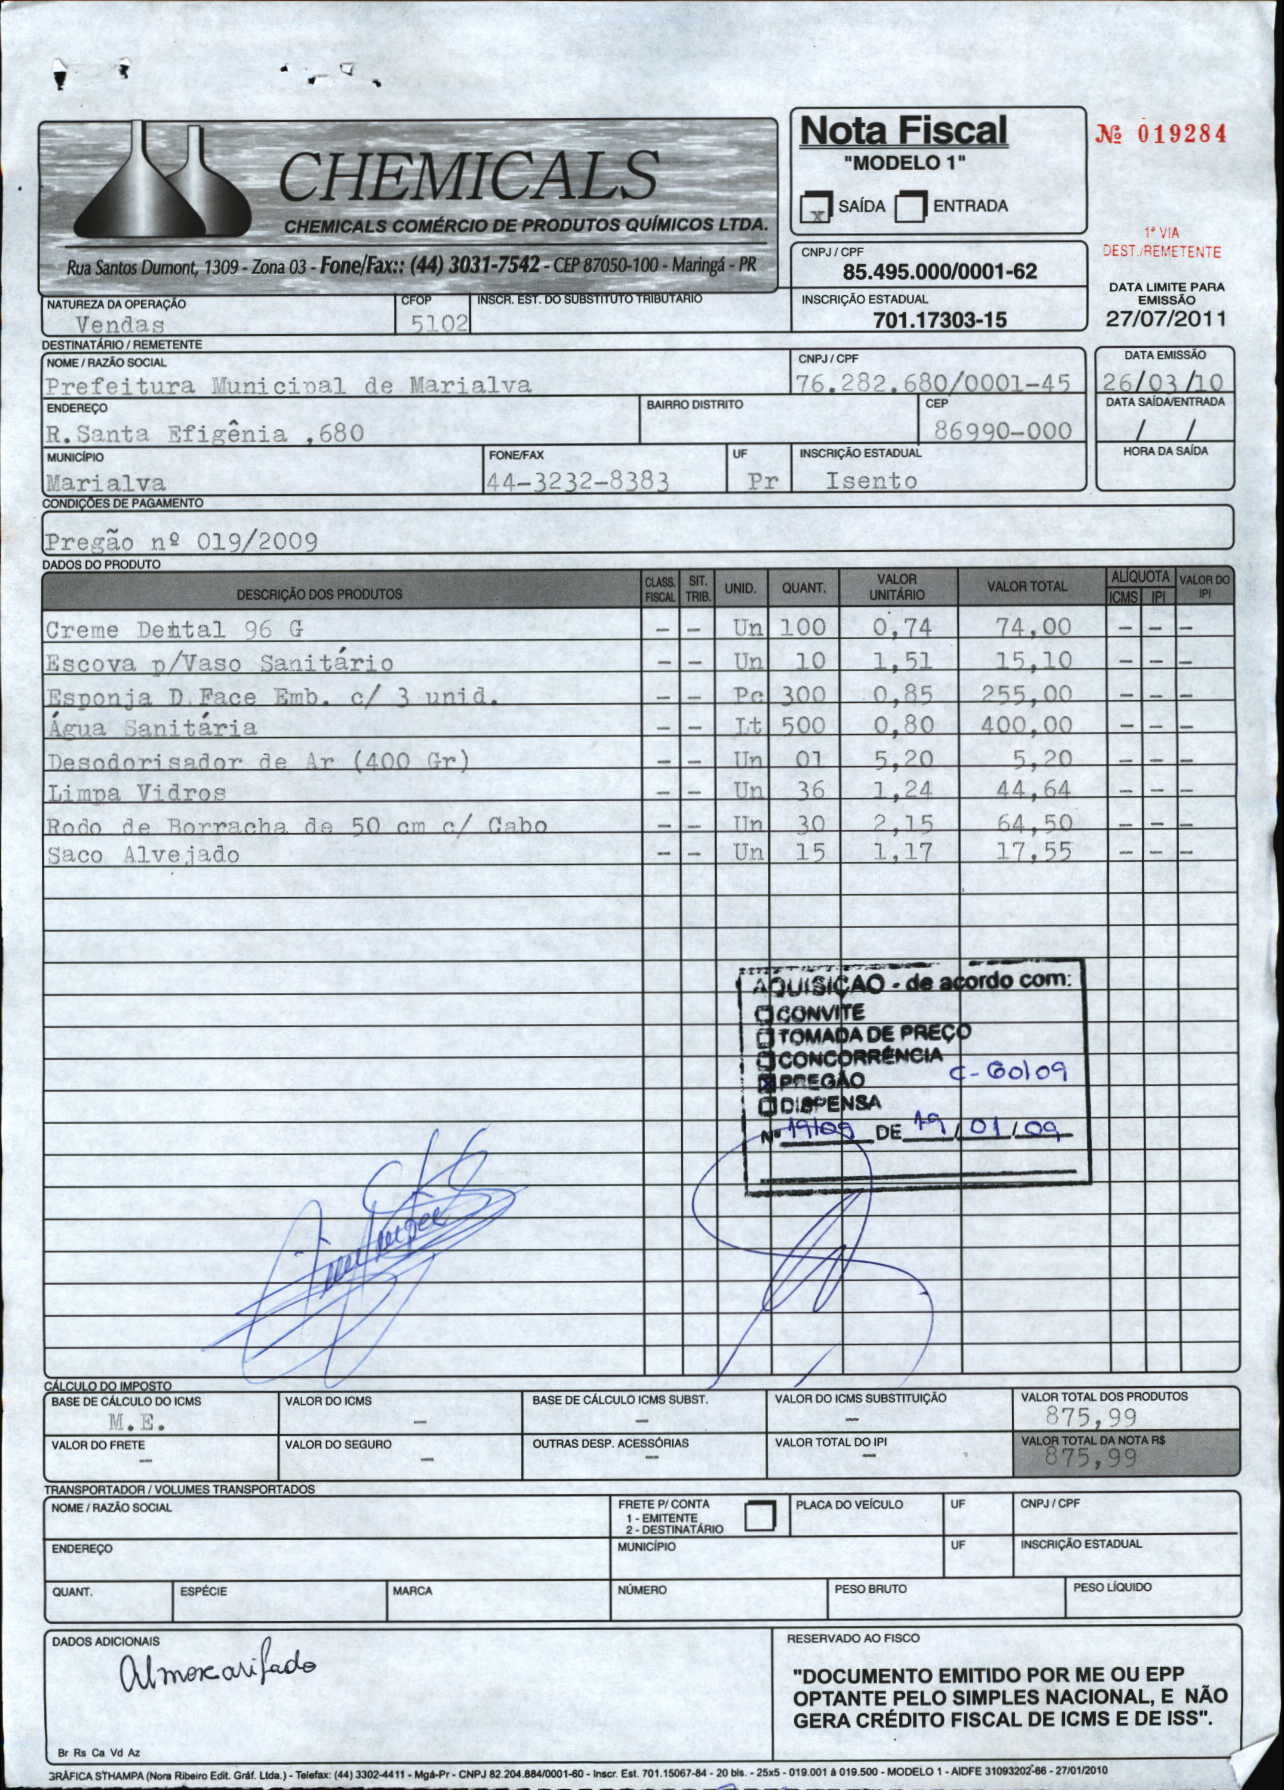 CHEMICALS
CHEMICALS COMÉRCIO DE PRODUTOS QUÍMICOS LTDA.
Rua Santos Dumont, 1309 - Zona 03 - Fone/Fax:: (44) 3031-7542 - CEP 87050-100 - Maringá - PR
Nota Fiscal
"MODELO 1"
x SAÍDA ENTRADA
Nº 019284
1ª VIA
DEST./REMETENTE
CNPJ / CPF
85.495.000/0001-62
INSCRIÇÃO ESTADUAL
701.17303-15
DATA LIMITE PARA
EMISSÃO
27/07/2011
NATUREZA DA OPERAÇÃO CFOP INSCR. EST. DO SUBSTITUTO TRIBUTÁRIO
Vendas 5102
DESTINATÁRIO / REMETENTE
NOME / RAZÃO SOCIAL CNPJ / CPF DATA EMISSÃO
Prefeitura Municipal de Marialva 76.282.680/0001-45 26/03/10
ENDEREÇO BAIRRO DISTRITO CEP DATA SAÍDA/ENTRADA
R.Santa Efigênia ,680 86990-000 / /
MUNICÍPIO FONE/FAX UF INSCRIÇÃO ESTADUAL HORA DA SAÍDA
Marialva 44-3232-8383 Pr Isento
CONDIÇÕES DE PAGAMENTO
Pregão nº 019/2009
DADOS DO PRODUTO
DESCRIÇÃO DOS PRODUTOS CLASS. FISCAL SIT. TRIB. UNID. QUANT. VALOR UNITÁRIO VALOR TOTAL ALÍQUOTA ICMS IPI VALOR DO IPI
Creme Dental 96 G - - Un 100 0,74 74,00 - - -
Escova p/Vaso Sanitário - - Un 10 1,51 15,10 - - -
Esponja D.Face Emb. c/ 3 unid. - - Pc 300 0,85 255,00 - - -
Água Sanitária - - Lt 500 0,80 400,00 - - -
Desodorisador de Ar (400 Gr) - - Un 01 5,20 5,20 - - -
Limpa Vidros - - Un 36 1,24 44,64 - - -
Rodo de Borracha de 50 cm c/ Cabo - - Un 30 2,15 64,50 - - -
Saco Alvejado - - Un 15 1,17 17,55 - - -
AQUISIÇÃO - de acordo com:
CONVITE
TOMADA DE PREÇO
CONCORRÊNCIA
x PREGÃO C-60/09
DISPENSA
Nº 19/09 DE 19/01/09
CÁLCULO DO IMPOSTO
BASE DE CÁLCULO DO ICMS VALOR DO ICMS BASE DE CÁLCULO ICMS SUBST. VALOR DO ICMS SUBSTITUIÇÃO VALOR TOTAL DOS PRODUTOS
M.E. - - - 875,99
VALOR DO FRETE VALOR DO SEGURO OUTRAS DESP. ACESSÓRIAS VALOR TOTAL DO IPI VALOR TOTAL DA NOTA R$
- - - - 875,99
TRANSPORTADOR / VOLUMES TRANSPORTADOS
NOME / RAZÃO SOCIAL FRETE P/ CONTA PLACA DO VEÍCULO UF CNPJ / CPF
1 - EMITENTE
2 - DESTINATÁRIO
ENDEREÇO MUNICÍPIO UF INSCRIÇÃO ESTADUAL
QUANT. ESPÉCIE MARCA NÚMERO PESO BRUTO PESO LÍQUIDO
DADOS ADICIONAIS RESERVADO AO FISCO
Almoxarifado
"DOCUMENTO EMITIDO POR ME OU EPP
OPTANTE PELO SIMPLES NACIONAL, E NÃO
GERA CRÉDITO FISCAL DE ICMS E DE ISS".
Br Rs Ca Vd Az
GRÁFICA STHAMPA (Nora Ribeiro Edit. Gráf. Ltda.) - Telefax: (44) 3302-4411 - Mgá-Pr - CNPJ 82.204.884/0001-60 - Inscr. Est. 701.15067-84 - 20 bls. - 25x5 - 019.001 à 019.500 - MODELO 1 - AIDFE 31093202-66 - 27/01/2010